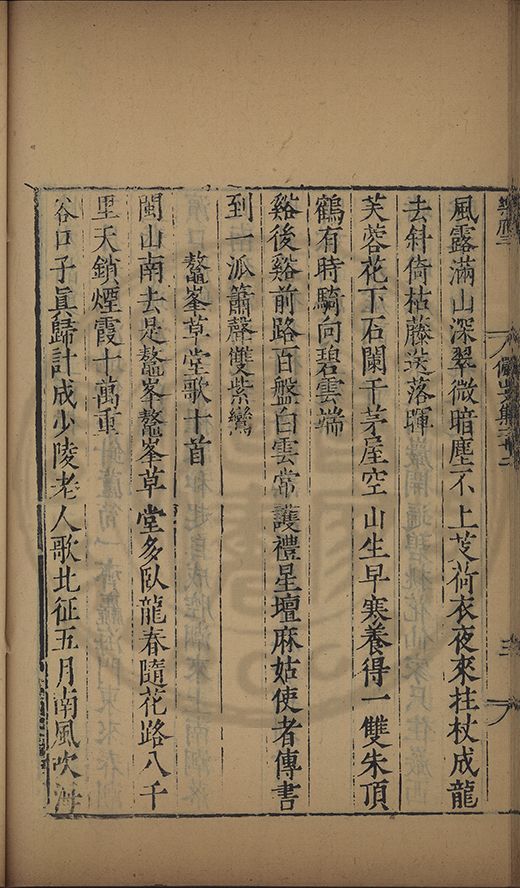 風露滿山深翠微暗塵不上芰荷衣夜來拄杖成龍
去斜倚枯藤送落暉
芙蓉花下石闌干茅屋空山生早寒養得一雙朱頂
鶴有時騎向碧雲端
谿後谿前路百盤白雲常護禮星壇麻姑使者傳書
到一派簫聲雙紫鸞
鼇峯草堂歌十首
閩山南去是鼇峯鼇峯草堂多臥龍春隨花路八千
里天鎖煙霞十萬重
谷口子真歸計成少陵老人歌北征五月南風吹海